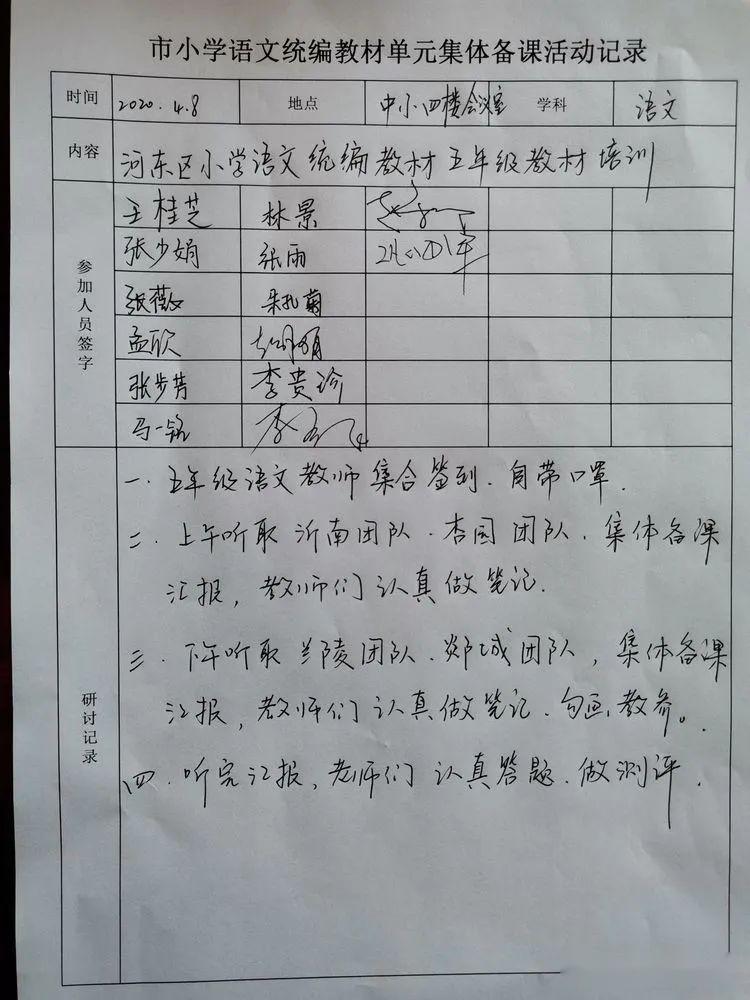 市小学语文统编教材单元集体备课活动记录
时间 2020.4.8 地点 中小四楼会议室 学科 语文
内容 河东区小学语文统编教材五年级教材培训
参加人员签字
王桂芝 林景
张少娟 张雨
张薇 朱孔菊
孟欣
张步芳 李贵珍
马一铭 李
研讨记录
一.五年级语文教师集合签到.自带口罩.
二.上午听取沂南团队.杏园团队.集体备课
汇报,教师们认真做笔记.
三.下午听取兰陵团队.郯城团队,集体备课
汇报,教师们认真做笔记.勾画教参。
四.听完汇报,老师们认真答题.做测评.